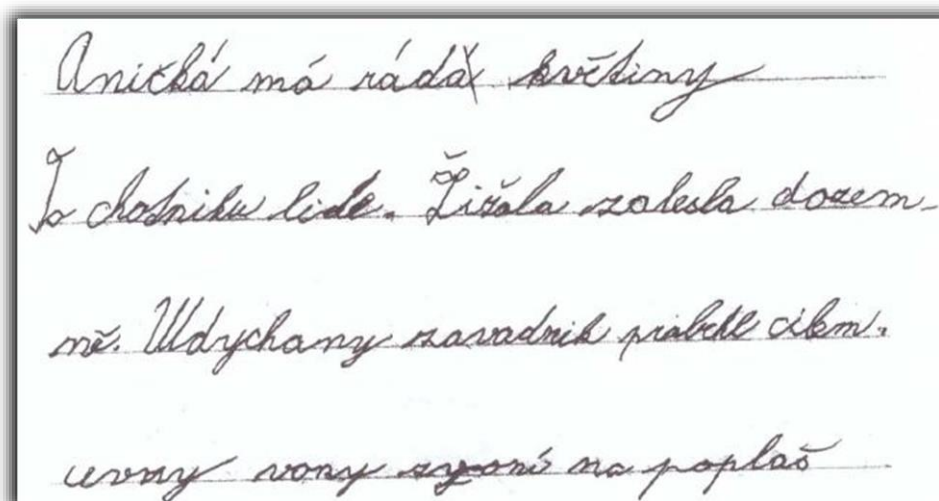 Aničká má ráda květiny
Po chodniku lide. Žižala zalesla dozem-
mě. Udychany zavadnik prabehl cilem.
uvny vony zvoní na poplaš